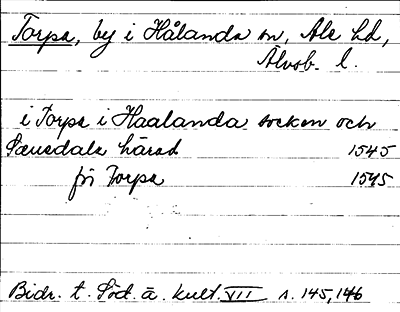 Torpa, by i Hålanda sn, Ale hd,
Älvsb. l.
i Torpa i Haalanda socken och
härad 1545
frå Torpa 1545
Bidr. t. Söd. ä. kult. VII s. 145, 146